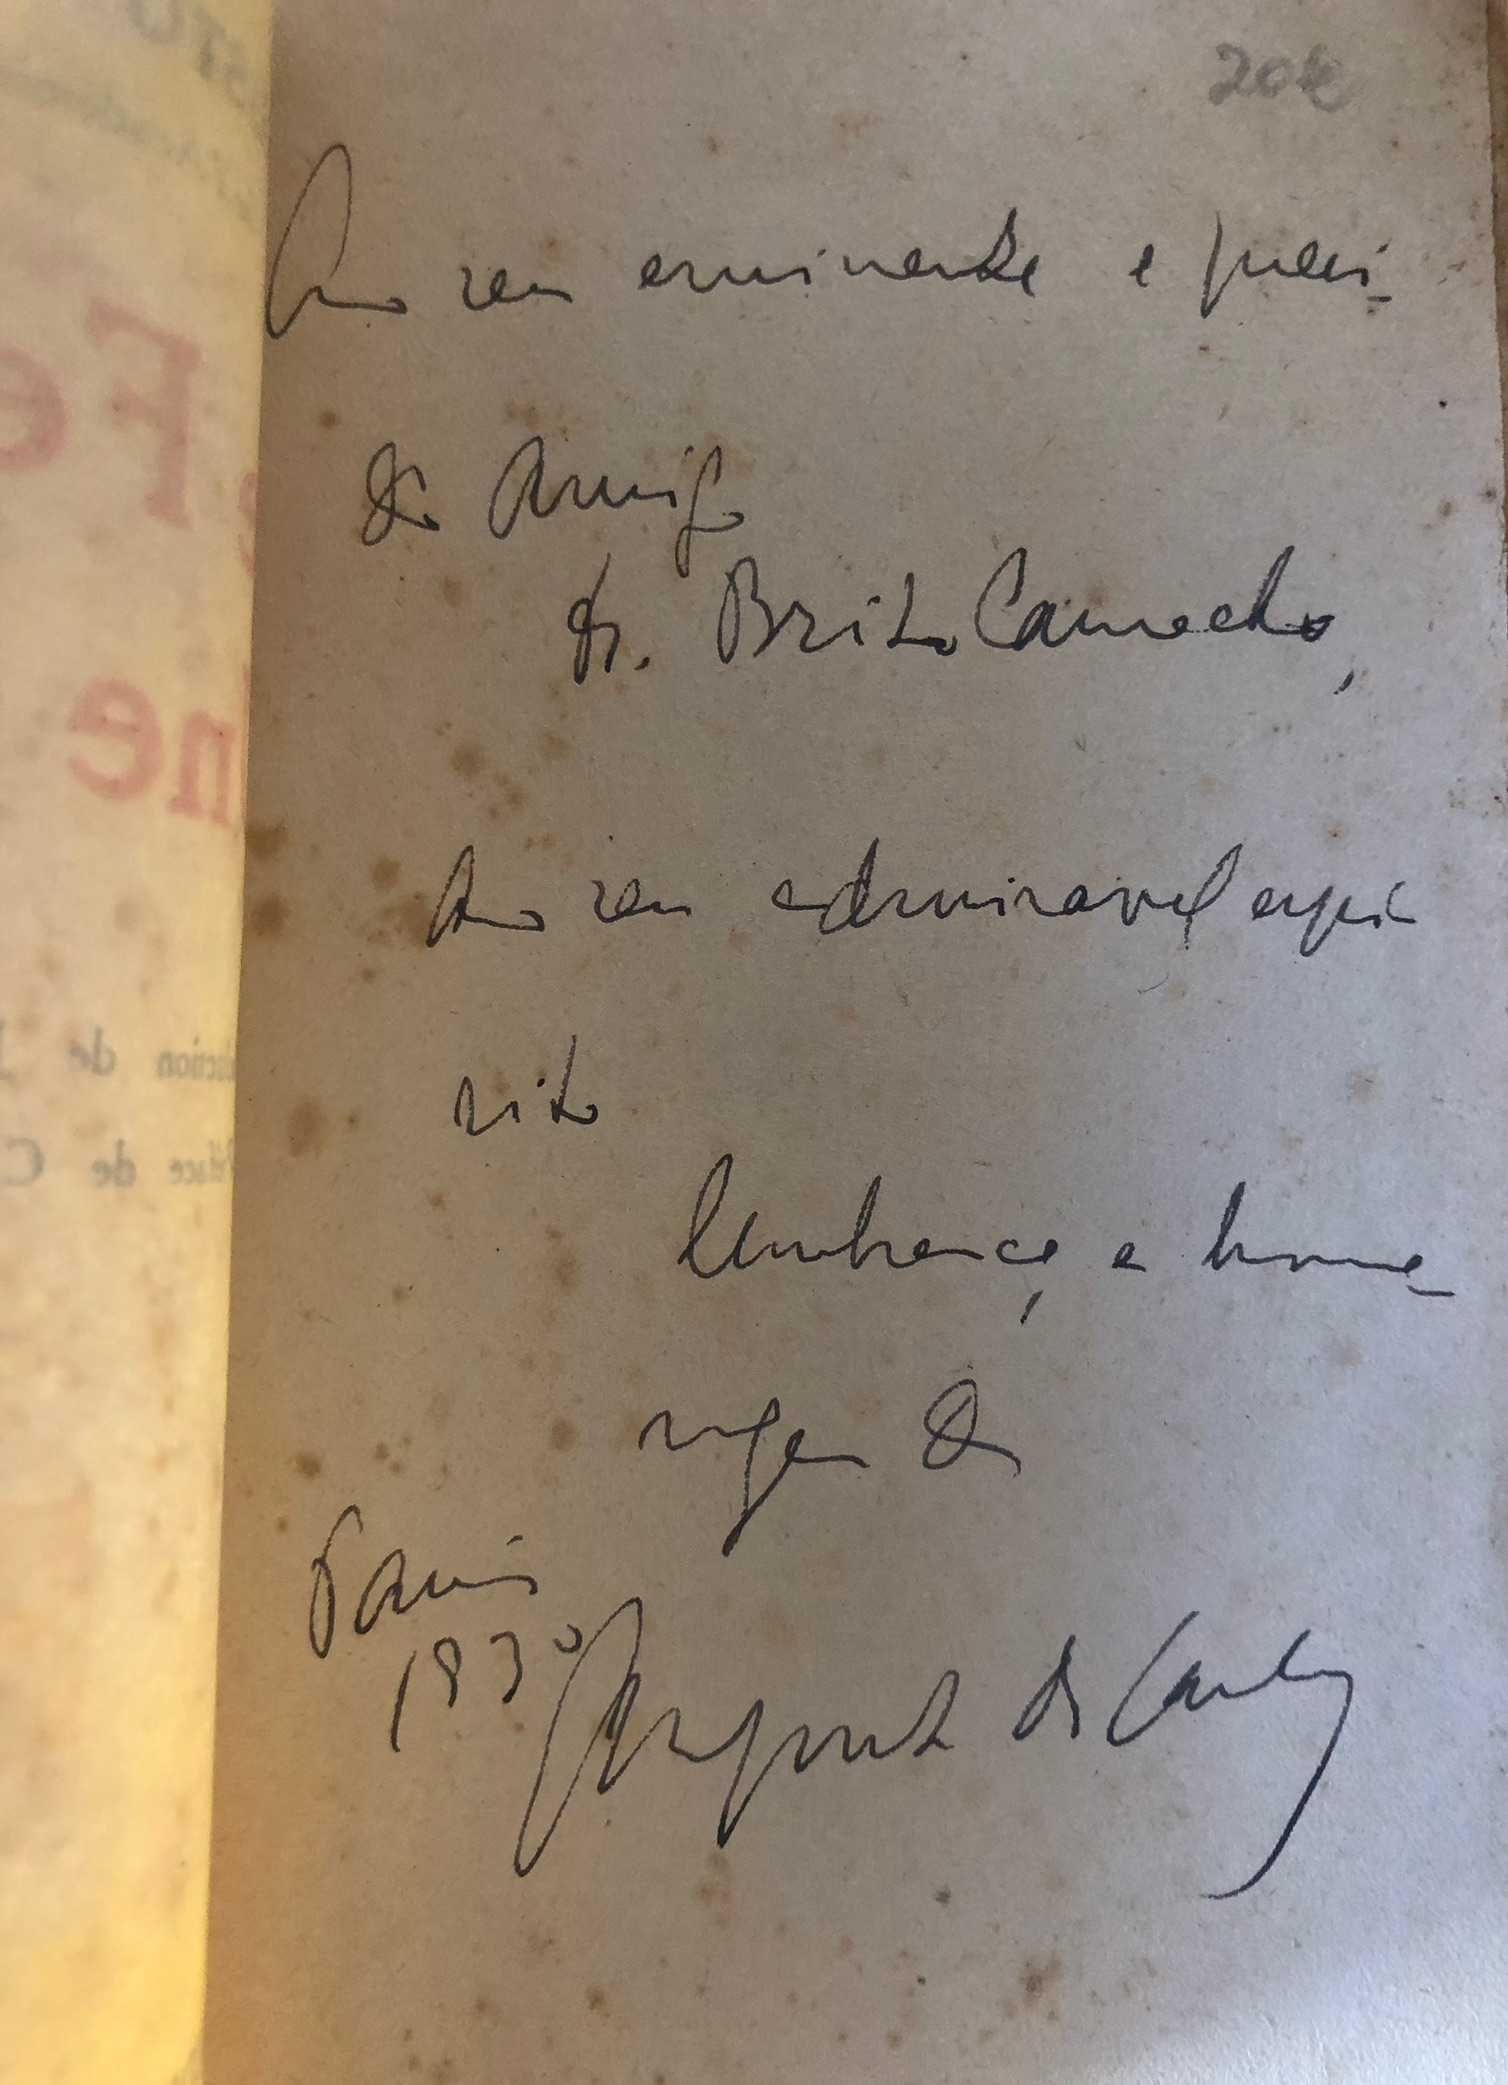 20€
Ao seu eminente e queri-
do Amigo
dr. Brito Camacho,
Ao seu admiravel espi-
rito
lembrança e home-
nagem de
Paris
1930
Augusto de Castro